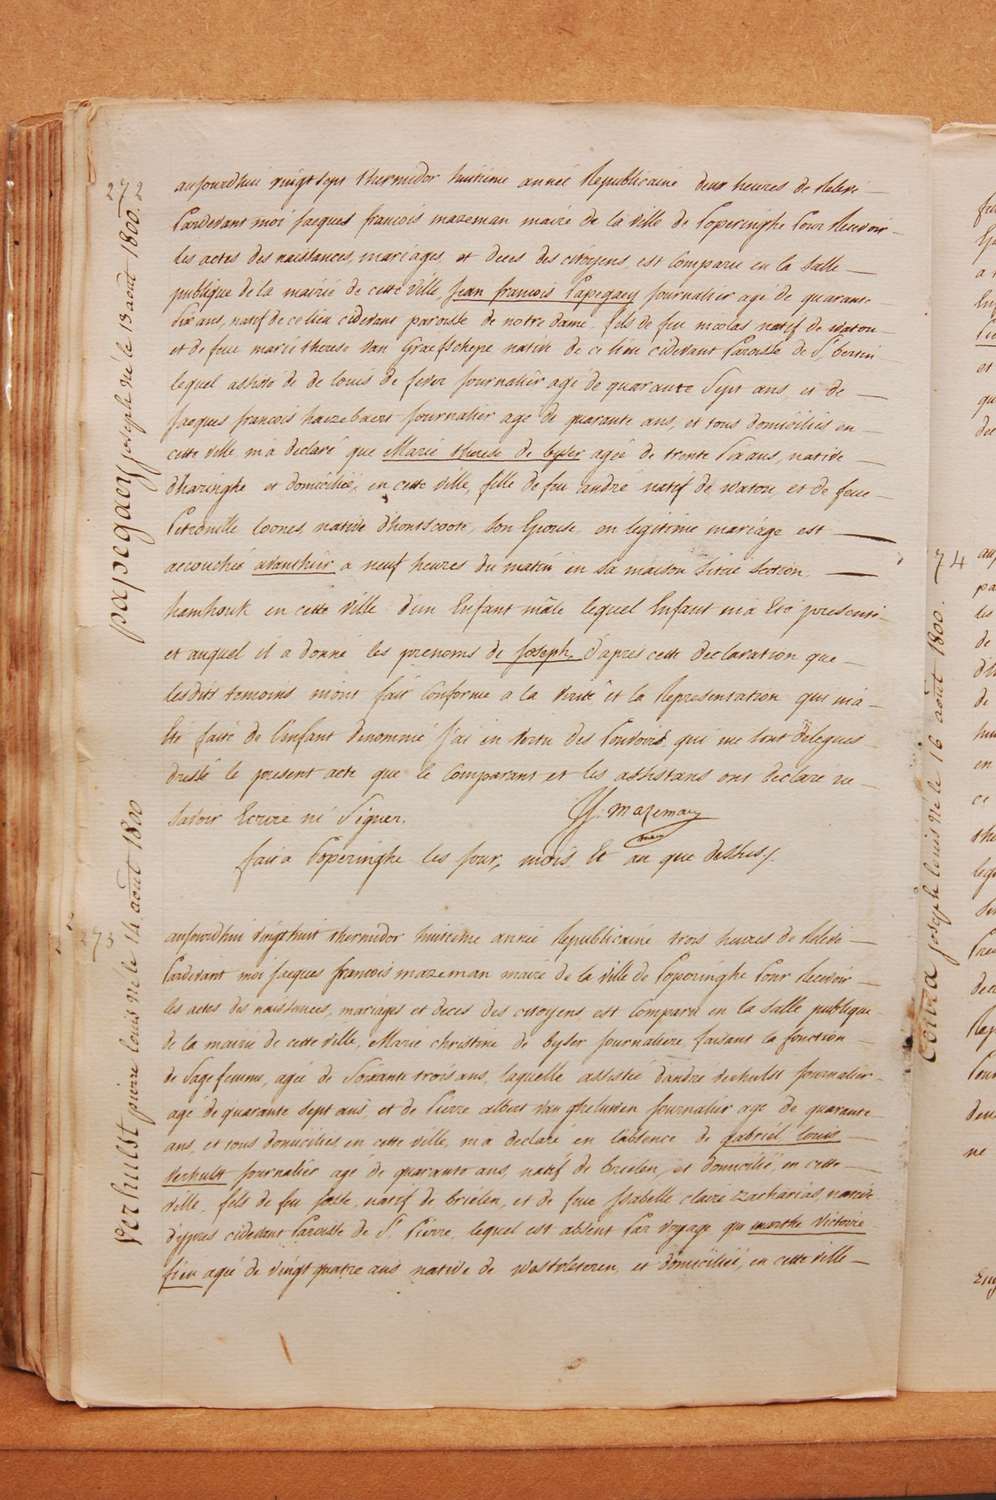 272
papegaey joseph né le 13 aout 1800.
aujourdhui vingt sept thermidor huitieme année Republicaine deux heures de Relevé —
Pardevant moi jacques francois mazeman maire de la ville de Poperinghe Pour Recevoir —
les actes des naissances, mariages et deces des citoyens est Comparu en la Salle —
publique de la mairie de cette ville Jean francois Papegaey journalier agé de quarante
Six ans, natif de ce lieu cidevant paroisse de notre dame, fils de feu nicolas natif de watou
et de feue marie therese Van Graefschepe native de ce lieu cidevant Paroisse de St. bertin
lequel assisté de de louis de fever journalier agé de quarante Sept ans, et de —
jacques francois hazebaert journalier agé de quarante ans, et tous domiciliés en —
cette ville m'a declaré que Marie therese de byser agée de trente Six ans, native —
d'haringhe et domiciliée, en cette ville, fille de feu andré natif de watou, et de feue
Petronille Coones, native d'hontscoote, Son Epouse, en legitime mariage est —
accouchée avanthier a neuf heures du matin en sa maison Située Section —
hamhouk en cette ville d'un Enfant mâle lequel Enfant m'a Eté presenté
et auquel il a donné les prenoms de Joseph. d'apres cette declaration que —
lesdits temoins m'ont fait Conforme a la Verité et la Representation qui m'a —
Eté faite de l'enfant denommé j'ai en vertu des Pouvoirs qui me Sont délégués
dressé le present acte que le Comparant et les assistans ont declaré ne —
Savoir Ecrire ni Signer. JF. Mazeman
fait a Poperinghe les jour, mois Et an que dessus /.
273
Verhulst pierre louis né le 14 août 1800
aujourdhui vingt huit thermidor huitieme année Republicaine trois heures de Relevé —
Pardevant moi jacques francois mazeman maire de la ville de Poperinghe Pour Recevoir —
les actes des naissances, mariages et deces des citoyens est Comparu en la Salle publique
de la mairie de cette ville, Marie christine de byser journaliere faisant la fonction —
de Sage femme, agée de Soixante trois ans, laquelle assistée d'andre verhulst journalier
agé de quarante Sept ans et de Pierre albert Van ghelween journalier agé de quarante
ans, et tous domiciliés en cette ville, m'a declaré en l'absence de gabriel louis —
Verhulst journalier agé de quarante ans, natif de brielen, et domicilié, en cette —
ville, fils de feu joste, natif de brielen, et de feue Isabelle claire zacharias native
d'ypres cidevant Paroisse de St. Pierre, lequel est absent Par voyage que marthe Victoire
fieu agée de vingt quatre ans native de westvleteren, et domiciliée, en cette ville —
74
Couva joseph louis né le 16 août 1800.